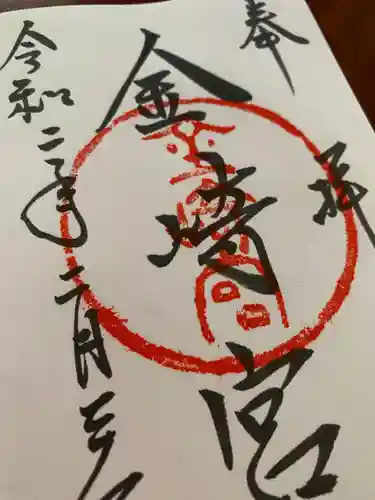 奉拝
金崎宮
令和二年二月三日